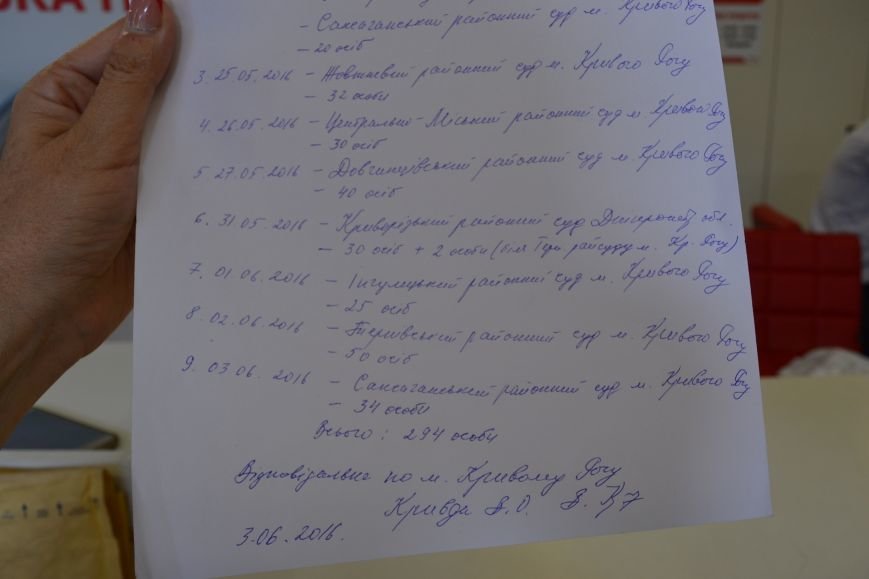 - Саксаганський районний суд м. Кривого Рогу
- 20 осіб
3. 25.05.2016 - Жовтневий районний суд м. Кривого Рогу
- 32 особи
4. 26.05.2016 - Центрально-Міський районний суд м. Кривого Рогу
- 30 осіб
5. 27.05.2016 - Довгинцівський районний суд м. Кривого Рогу
- 40 осіб
6. 31.05.2016 - Криворізький районний суд Дніпропет. обл.
- 30 осіб + 2 особи (біля Терн. райсуду м. Кр. Рогу)
7. 01.06.2016 - Інгулецький районний суд м. Кривого Рогу
- 25 осіб
8. 02.06.2016 - Тернівський районний суд м. Кривого Рогу
- 50 осіб
9. 03.06.2016 - Саксаганський районний суд м. Кривого Рогу
- 34 особи
Всього: 294 особи
Відповідальна по м. Кривому Рогу
Кривда
3.06.2016.